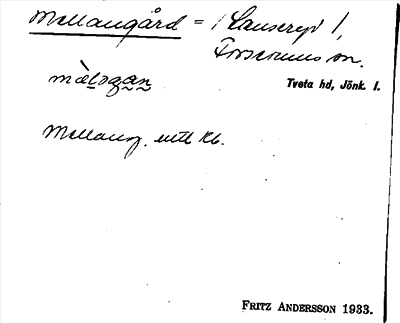 Mellangård = / Lanseryd 1,
Forserums sn.
mæ̀lɔgan
Tveta hd, Jönk. l.
Mellang. enl. Kb.
FRITZ ANDERSSON 1933.